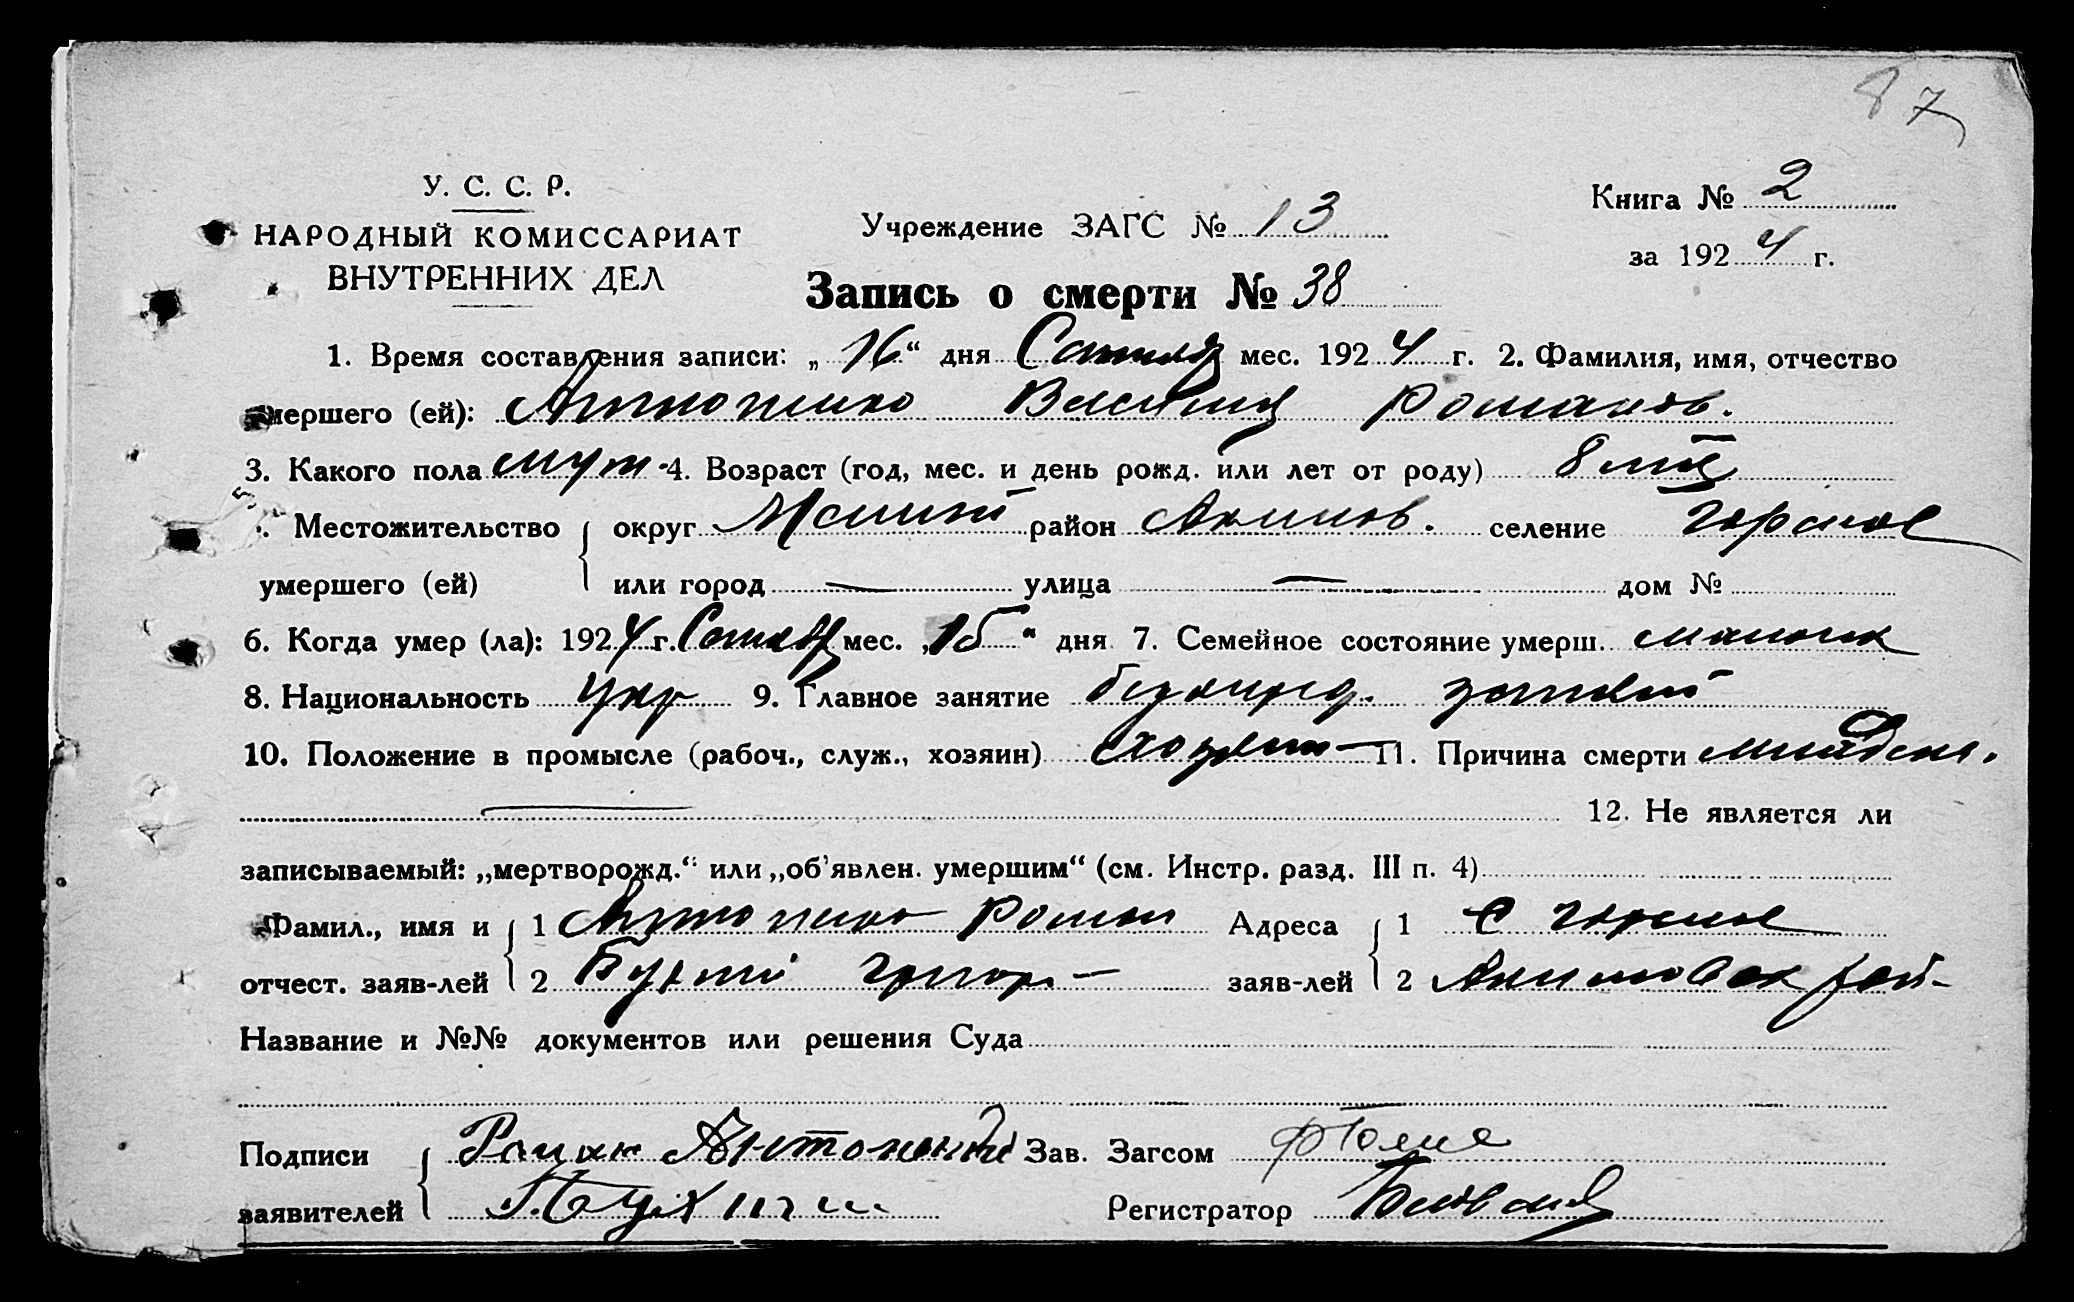 87
У. С. С. Р.
НАРОДНЫЙ КОМИССАРИАТ
ВНУТРЕННИХ ДЕЛ
Учреждение ЗАГС № 13
Книга № 2
за 1924 г.
Запись о смерти № 38
1. Время составления записи: „16“ дня мес. 1924 г. 2. Фамилия, имя, отчество
умершего (ей): Антоненко Василий Романов.
3. Какого пола муж 4. Возраст (год, мес. и день рожд. или лет от роду) 8
Местожительство округ Мелит район Акимов. селение Горелое
умершего (ей) или город — улица — дом №
6. Когда умер (ла): 1924 г. мес. „15“ дня 7. Семейное состояние умерш.
8. Национальность укр 9. Главное занятие
10. Положение в промысле (рабоч., служ., хозяин) 11. Причина смерти
12. Не является ли
записываемый: „мертворожд.“ или „об'явлен. умершим“ (см. Инстр. разд. III п. 4)
Фамил., имя и 1 Антоненко Роман Адреса 1 с Горелое
отчест. заяв-лей 2 Григор — заяв-лей 2 Акимовск рай-
Название и №№ документов или решения Суда
Подписи Роман Антоненко Зав. Загсом
заявителей Регистратор